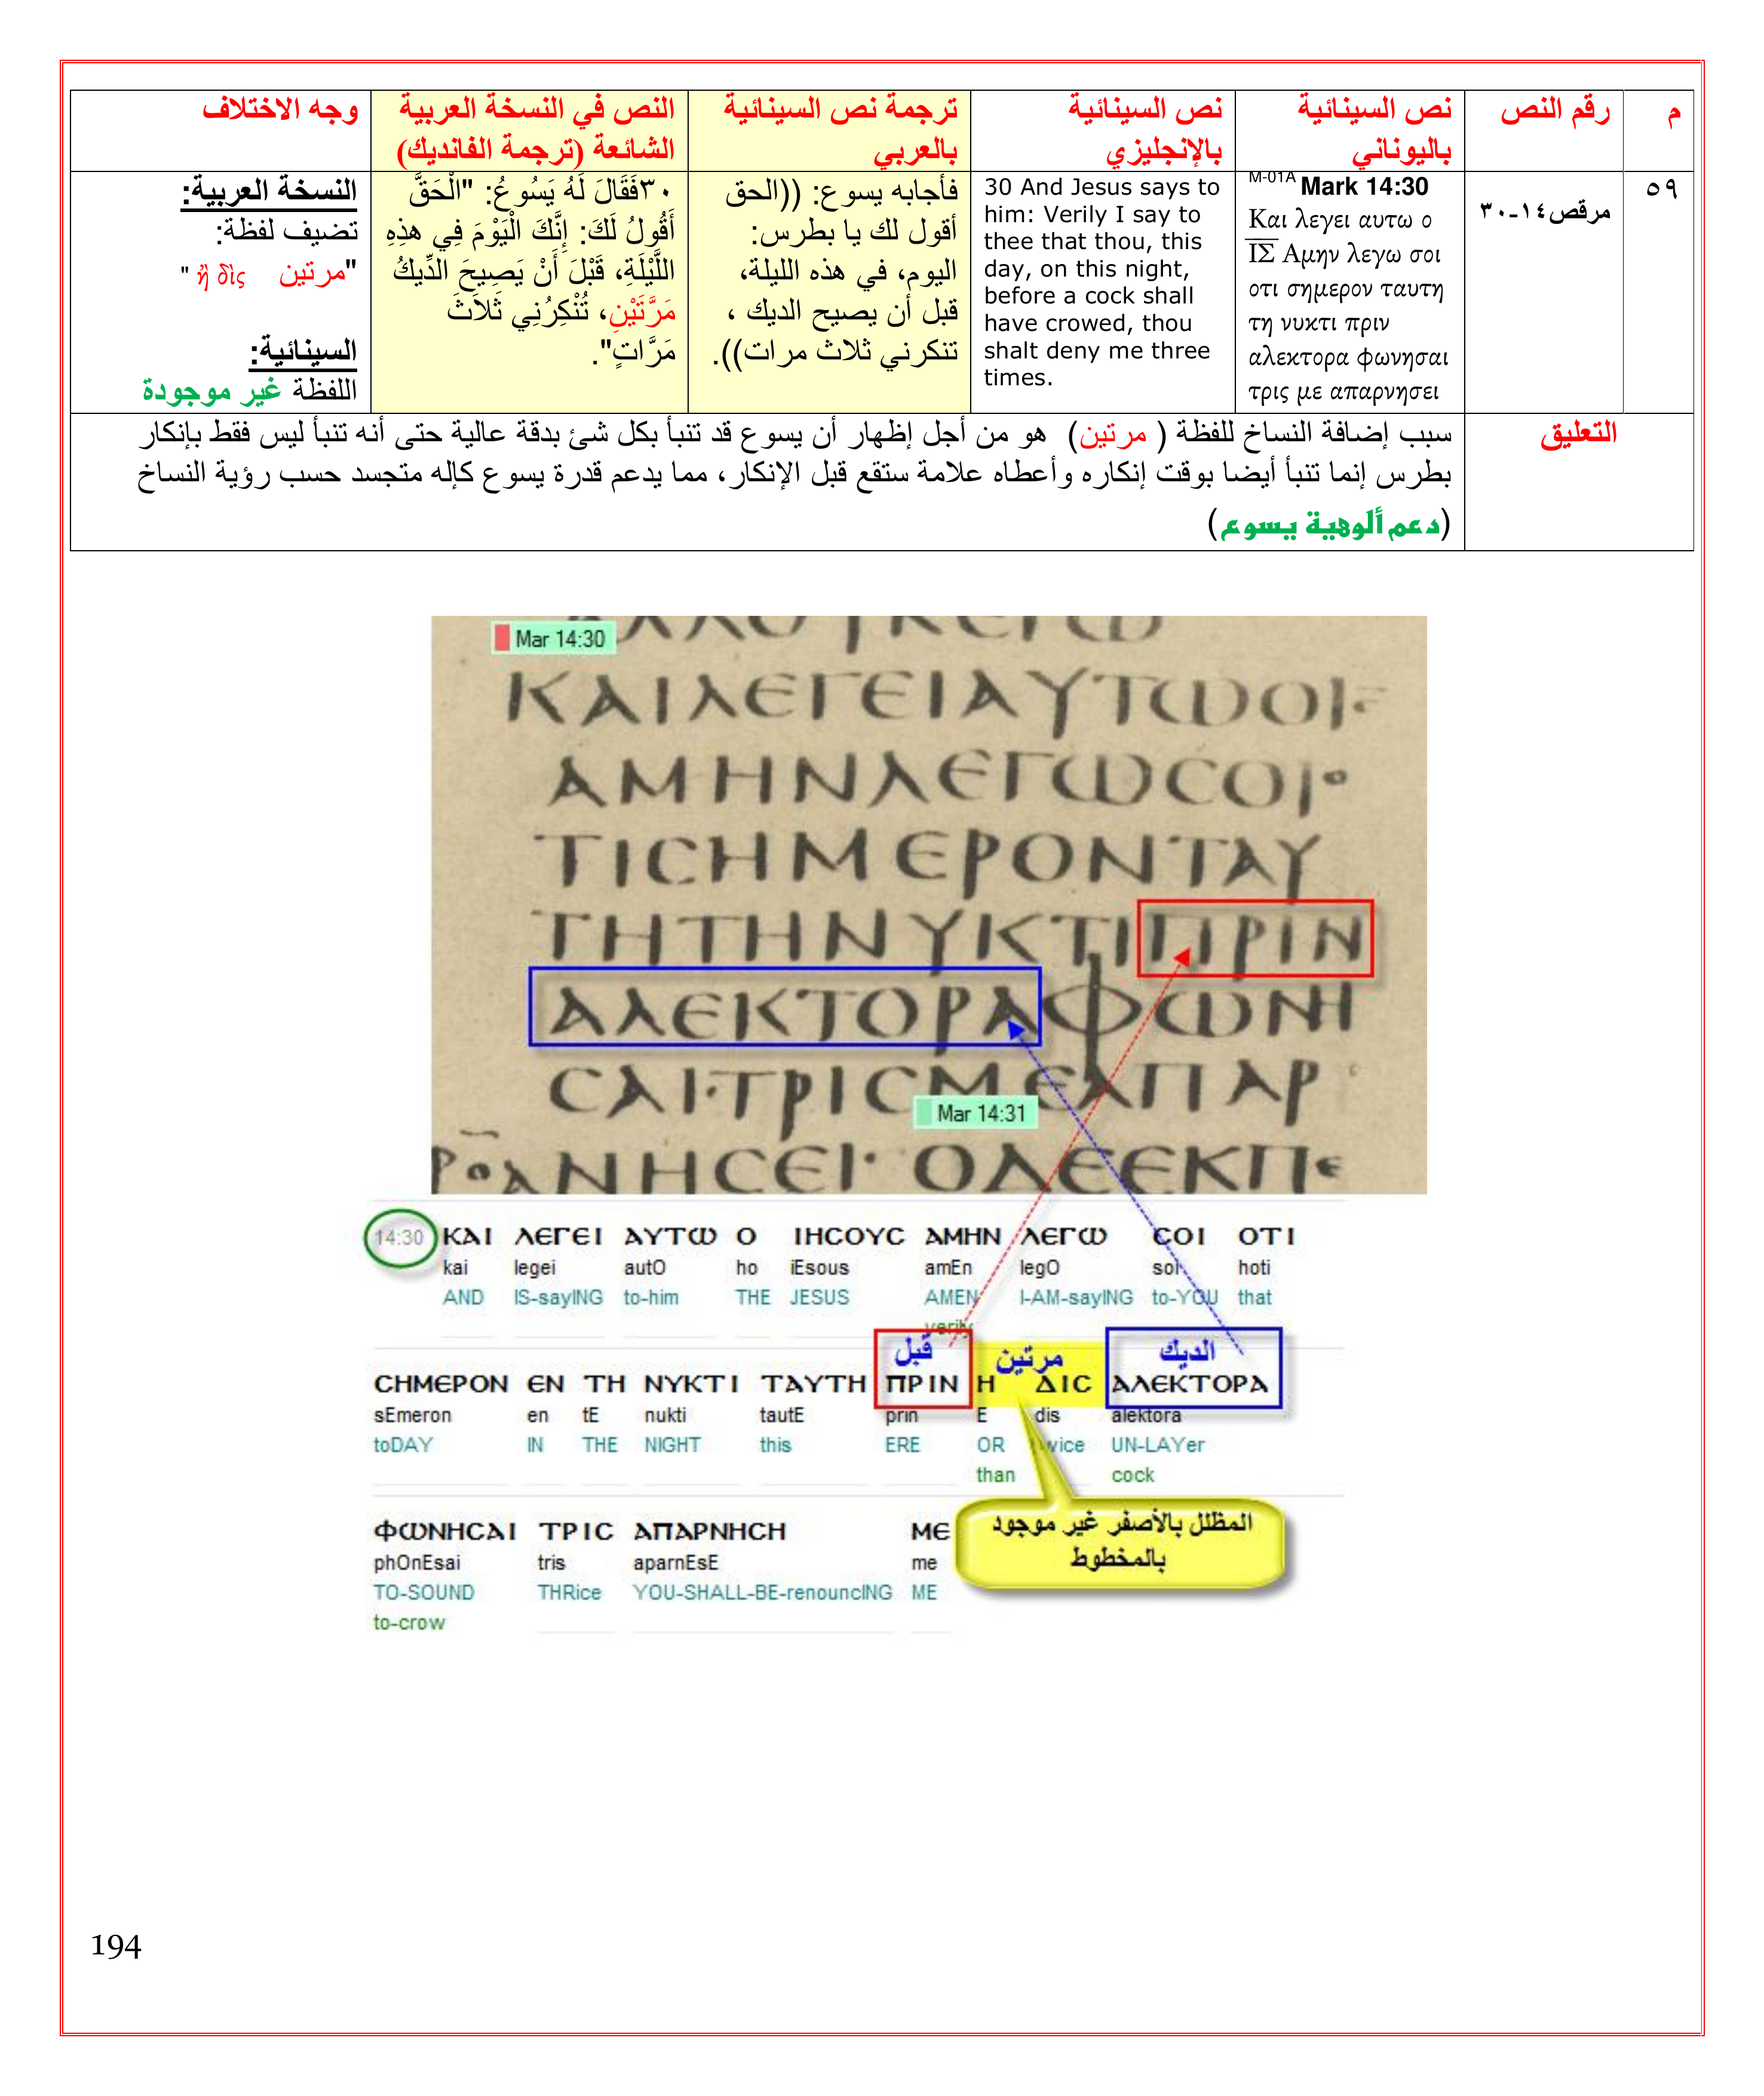 م
رقم النص
نص السينائية
باليوناني
نص السينائية
بالإنجليزي
ترجمة نص السينائية
بالعربي
النص في النسخة العربية
الشائعة (ترجمة الفانديك)
وجه الاختلاف
٥٩
مرقص١٤-٣٠
M-01A Mark 14:30
Και λεγει αυτω ο
ΙΣ Αμην λεγω σοι
οτι σημερον ταυτη
τη νυκτι πριν
αλεκτορα φωνησαι
τρις με απαρνησει
30 And Jesus says to
him: Verily I say to
thee that thou, this
day, on this night,
before a cock shall
have crowed, thou
shalt deny me three
times.
فأجابه يسوع: ((الحق
أقول لك يا بطرس:
اليوم، في هذه الليلة،
قبل أن يصيح الديك ،
تنكرني ثلاث مرات)).
٣٠فَقَالَ لَهُ يَسُوعُ: "الْحَقَّ
أَقُولُ لَكَ: إِنَّكَ الْيَوْمَ فِي هذِهِ
اللَّيْلَةِ، قَبْلَ أَنْ يَصِيحَ الدِّيكُ
مَرَّتَيْنِ، تُنْكِرُنِي ثَلاَثَ
مَرَّاتٍ".
النسخة العربية:
تضيف لفظة:
"مرتين ἢ δὶς "
السينائية:
اللفظة غير موجودة
التعليق
سبب إضافة النساخ للفظة ( مرتين) هو من أجل إظهار أن يسوع قد تنبأ بكل شئ بدقة عالية حتى أنه تنبأ ليس فقط بإنكار
بطرس إنما تنبأ أيضا بوقت إنكاره وأعطاه علامة ستقع قبل الإنكار، مما يدعم قدرة يسوع كإله متجسد حسب رؤية النساخ
(دعم ألوهية يسوع)
Mar 14:30
ΚΑΙΛΕΓΕΙΑΥΤΩΟΙ
ΑΜΗΝΛΕΓΩCΟΙο
ΤΙCΗΜΕΡΟΝΤΑΥ
ΤΗΤΗΝΥΚΤΙΠΡΙΝ
ΑΛΕΚΤΟΡΑΦΩΝΗ
CΑΙ·ΤΡΙCΜΕΑΠΑΡ
Mar 14:31
ΑΝΗCΕΙ· ΟΔΕΕΚΠΕ
14:30 ΚΑΙ ΛΕΓΕΙ ΑΥΤΩ Ο ΙΗCΟΥC ΑΜΗΝ ΛΕΓΩ CΟΙ ΟΤΙ
kai legei autO ho iEsous amEn legO soi hoti
AND IS-sayING to-him THE JESUS AMEN I-AM-sayING to-YOU that
verily
قبل مرتين الديك
CΗΜΕΡΟΝ ΕΝ ΤΗ ΝΥΚΤΙ ΤΑΥΤΗ ΠΡΙΝ Η ΔΙC ΑΛΕΚΤΟΡΑ
sEmeron en tE nukti tautE prin E dis alektora
toDAY IN THE NIGHT this ERE OR twice UN-LAYer
than cock
ΦΩΝΗCΑΙ ΤΡΙC ΑΠΑΡΝΗCΗ ΜΕ
phOnEsai tris aparnEsE me
TO-SOUND THRice YOU-SHALL-BE-renouncING ME
to-crow
المظلل بالأصفر غير موجود
بالمخطوط
194